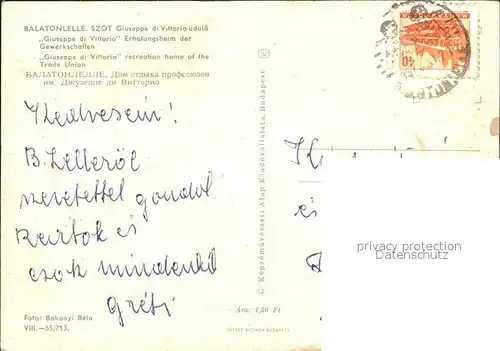 BALATONLELLE. SZOT Giuseppe di Vittorio üdülő
„Giuseppe di Vittorio" Erholungsheim der
Gewerkschaften
„Giuseppe di Vittorio" recreation home of the
Trade Union
БАЛАТОНЛЕЛЛЕ. Дом отдыха профсоюзов
им. Джузеппе ди Витторио
Kedveseim!
B. Lelléről
szeretettel gondol
Reátok és
csok mindenkit
Gréti
Foto: Bakonyi Béla
VIII.—55/713.
Ára: 1,50 Ft
OFFSET KOSSUTH BUDAPEST
C Képzőművészeti Alap Kiadóvállalata, Budapest
MAGYAR POSTA
40
K
és
privacy protection
Datenschutz